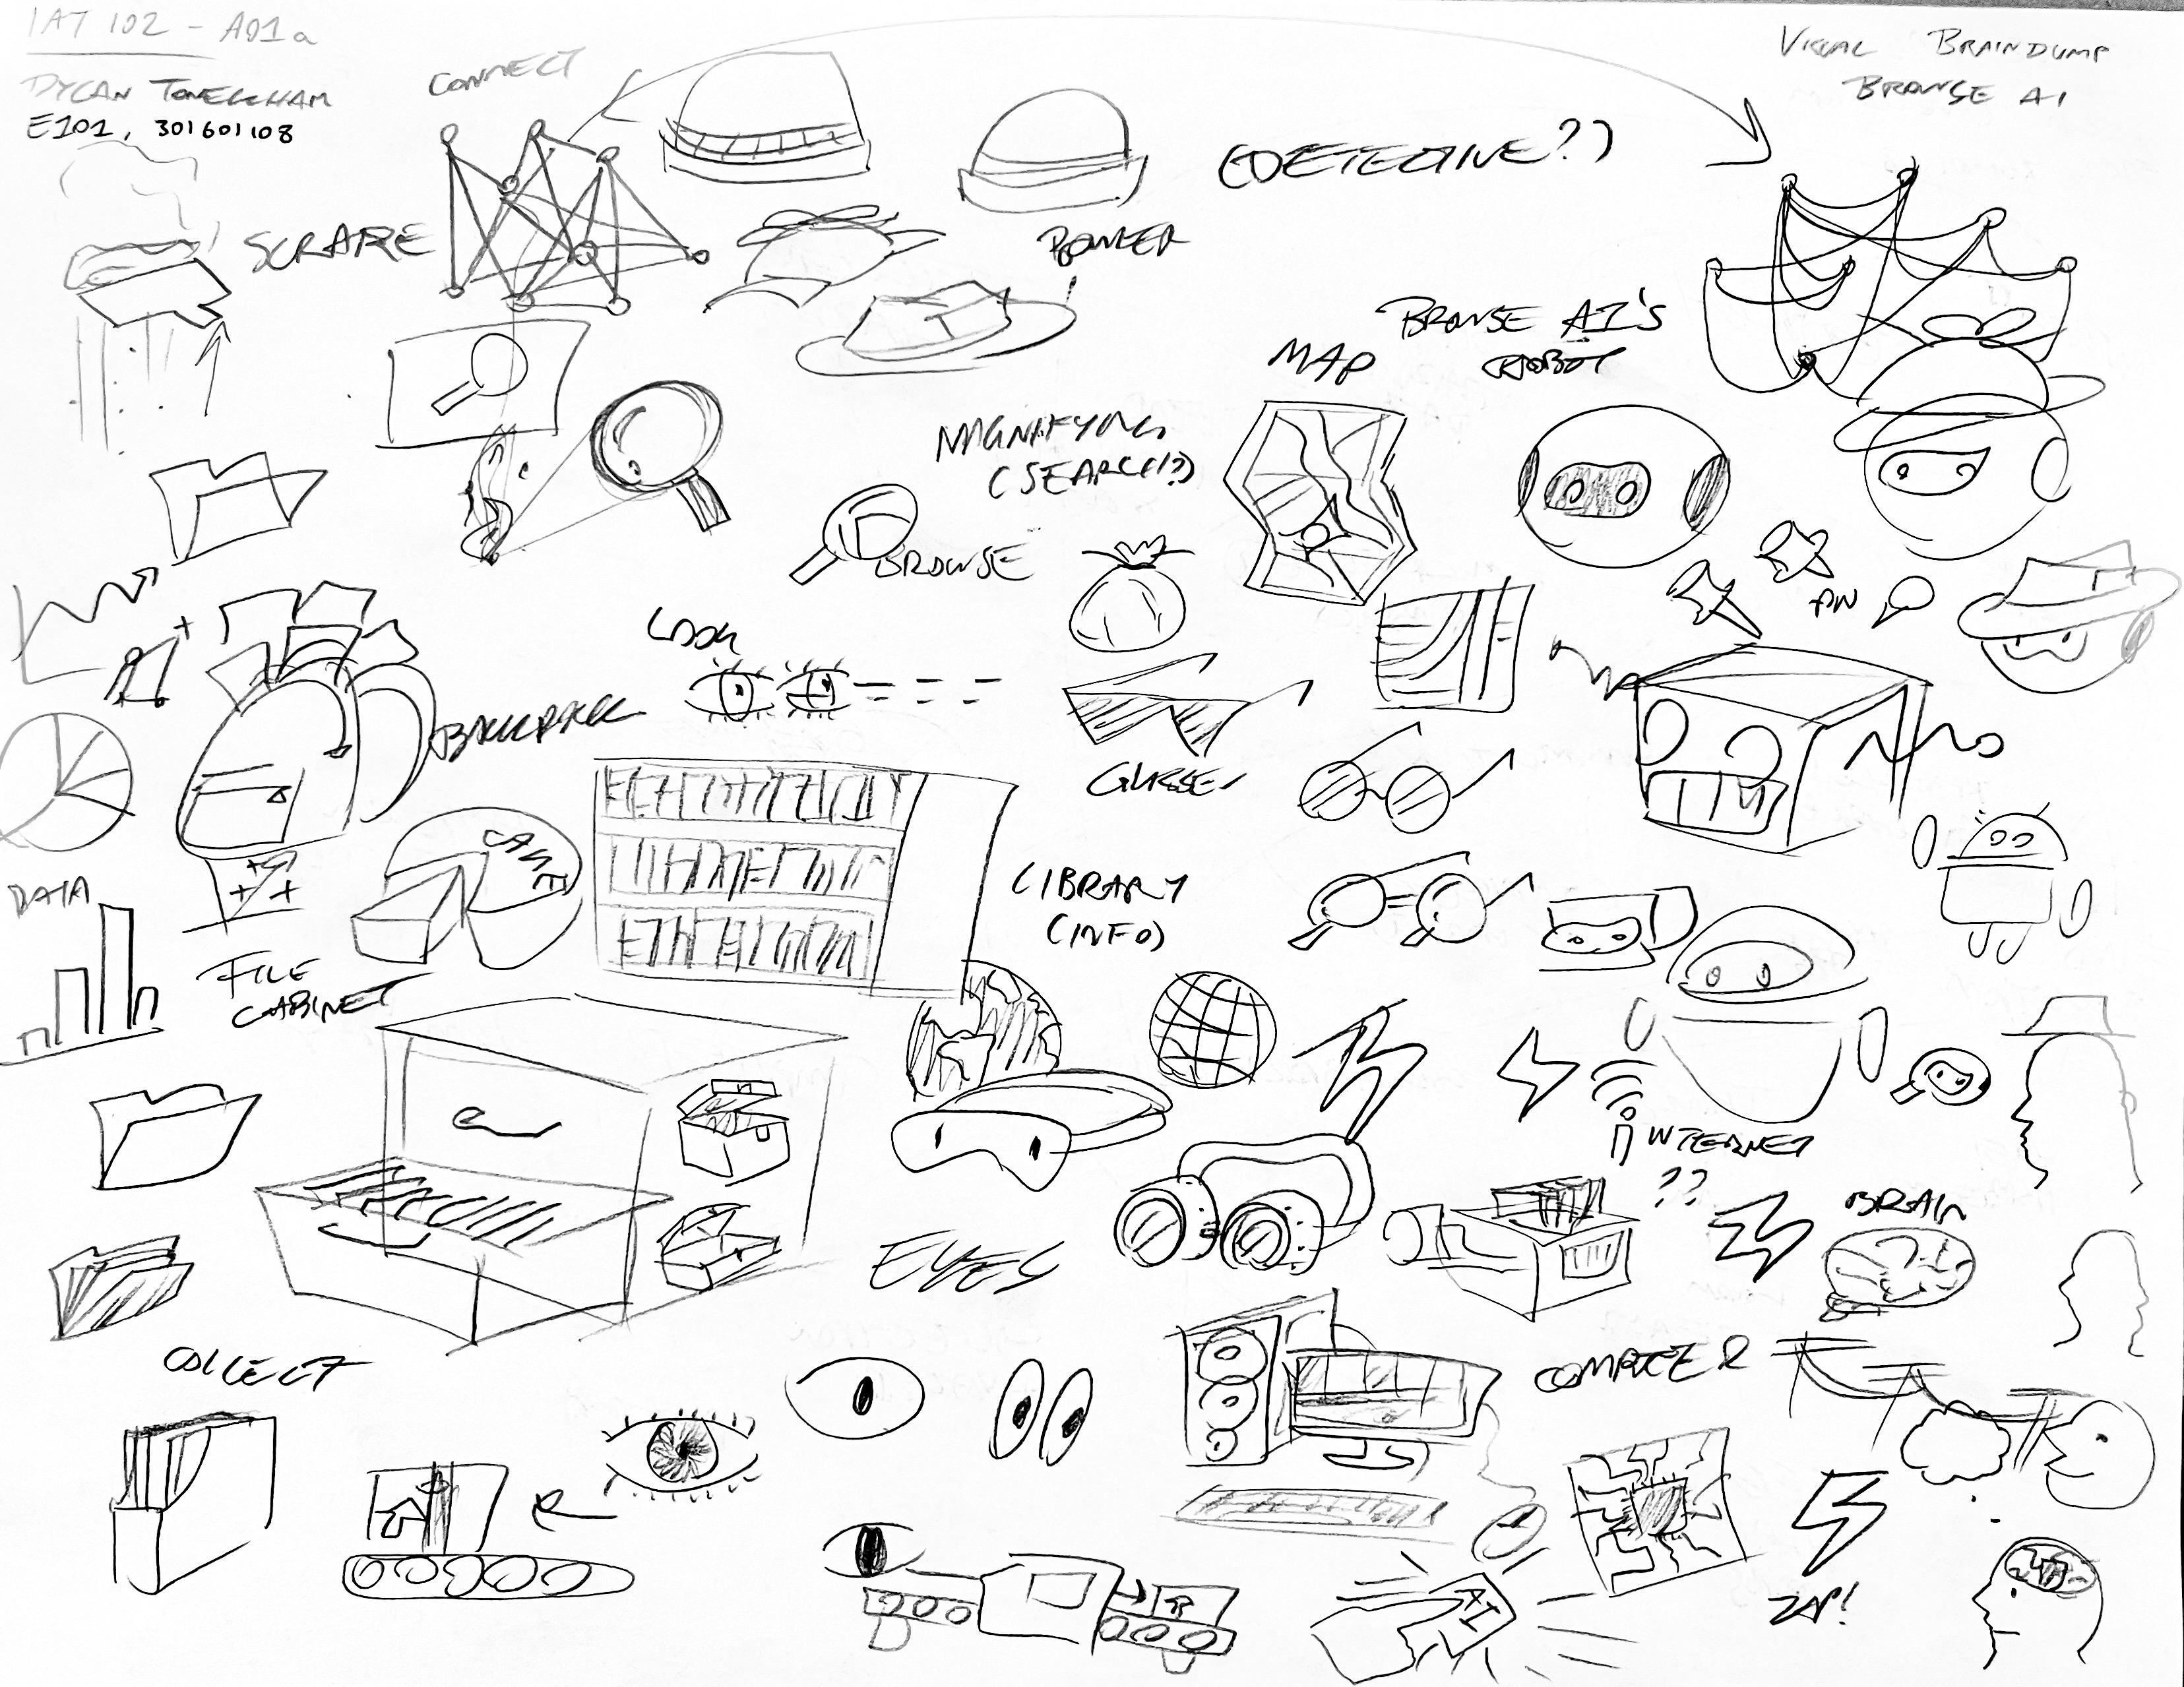 IAT 102 - A01a
E101, 301601108
VISUAL BRAINDUMP
BROWSE AI
CONNECT
(DETECTIVE?)
SCRAPE
BOWLER
BROWSE AI'S
ROBOT
MAP
MAGNIFYING
(SEARCH?)
BROWSE
PIN
LOOK
BACKPACK
GLASSES
CAKE
DATA
LIBRARY
(INFO)
FILE
CABINET
INTERNET
??
BRAIN
EYES
COLLECT
COMPUTER
AI
ZAP!